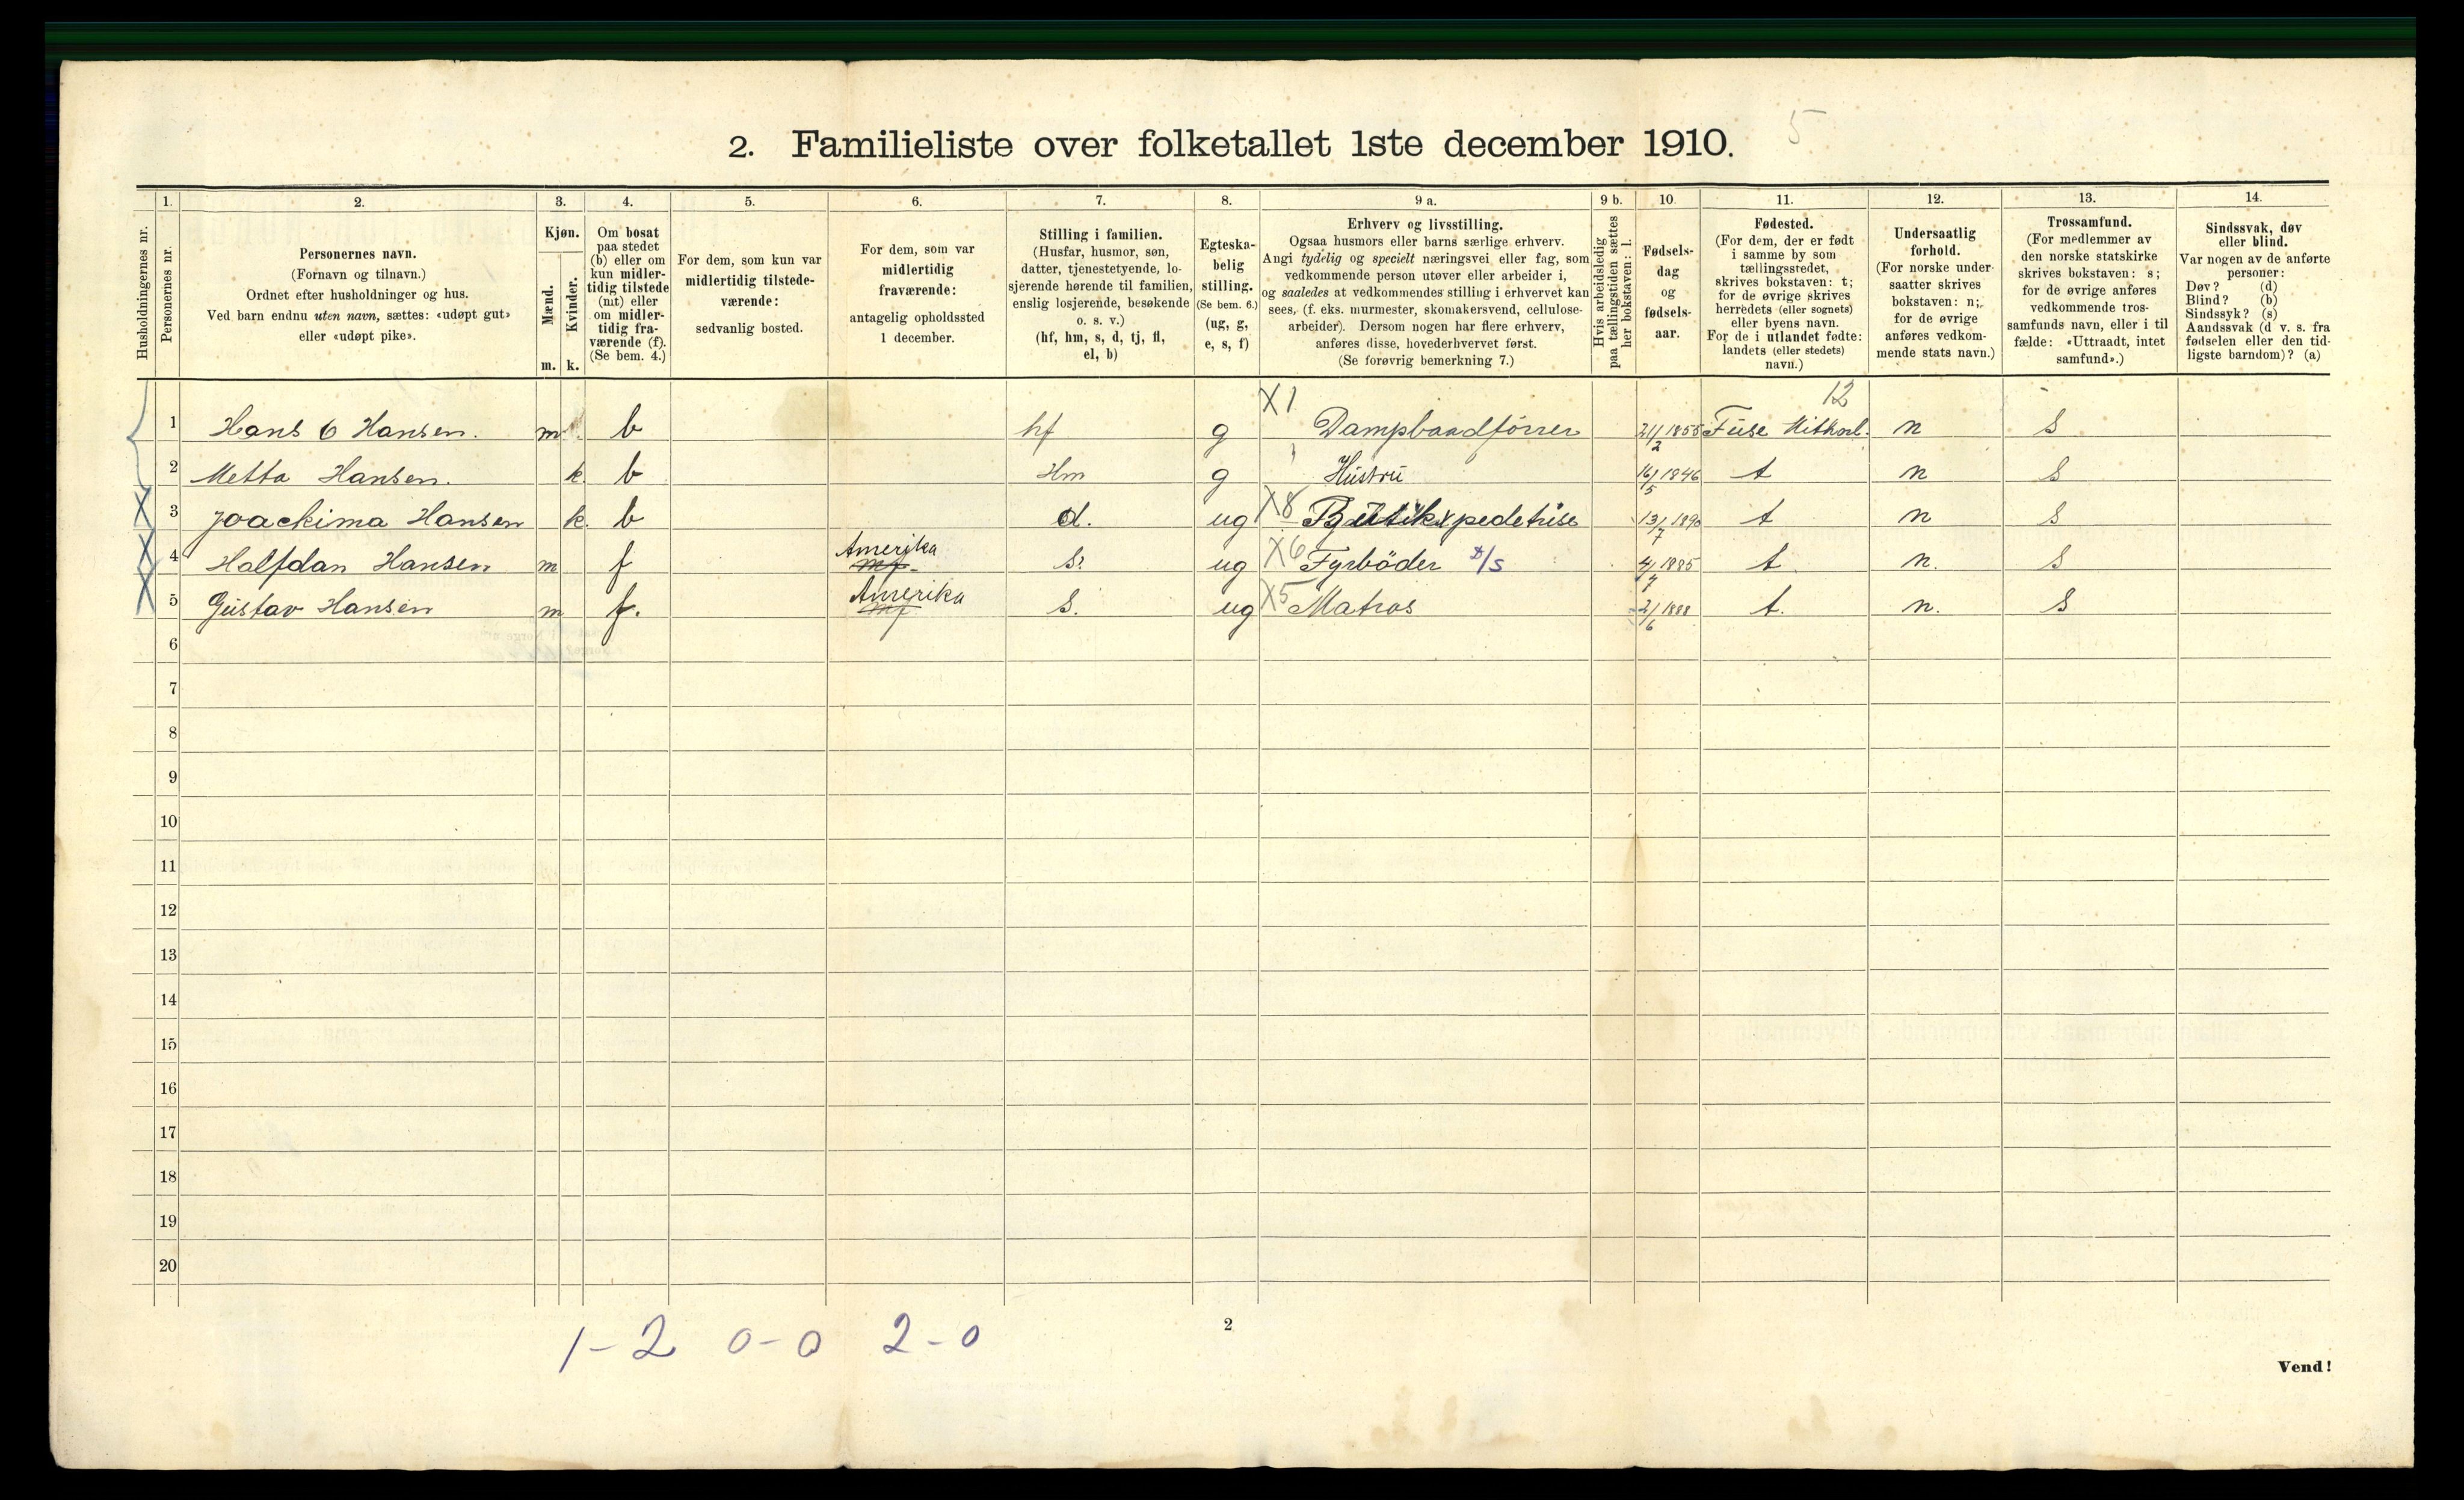 5
2. Familieliste over folketallet 1ste december 1910.
1. 2. 3. 4. 5. 6. 7. 8. 9 a. 9 b. 10. 11. 12. 13. 14.
Husholdningernes nr.
Personernes nr.
Personernes navn.
(Fornavn og tilnavn.)
Ordnet efter husholdninger og hus.
Ved barn endnu uten navn, sættes: «udøpt gut»
eller «udøpt pike».
Kjøn.
Mænd.
Kvinder.
m. k.
Om bosat
paa stedet
(b) eller om
kun midler-
tidig tilstede
(mt) eller
om midler-
tidig fra-
værende (f).
(Se bem. 4.)
For dem, som kun var
midlertidig tilstede-
værende:
sedvanlig bosted.
For dem, som var
midlertidig
fraværende:
antagelig opholdssted
1 december.
Stilling i familien.
(Husfar, husmor, søn,
datter, tjenestetyende, lo-
sjerende hørende til familien,
enslig losjerende, besøkende
o. s. v.)
(hf, hm, s, d, tj, fl,
el, b)
Egteska-
belig
stilling.
(Se bem. 6.)
(ug, g,
e, s, f)
Erhverv og livsstilling.
Ogsaa husmors eller barns særlige erhverv.
Angi tydelig og specielt næringsvei eller fag, som
vedkommende person utøver eller arbeider i,
og saaledes at vedkommendes stilling i erhvervet kan
sees, (f. eks. murmester, skomakersvend, cellulose-
arbeider). Dersom nogen har flere erhverv,
anføres disse, hovederhvervet først.
(Se forøvrig bemerkning 7.)
Hvis arbeidsledig
paa tællingstiden sættes
her bokstaven: l.
Fødsels-
dag
og
fødsels-
aar.
Fødested.
(For dem, der er født
i samme by som
tællingsstedet,
skrives bokstaven: t;
for de øvrige skrives
herredets (eller sognets)
eller byens navn.
For de i utlandet fødte:
landets (eller stedets)
navn.)
Undersaatlig
forhold.
(For norske under-
saatter skrives
bokstaven: n;
for de øvrige
anføres vedkom-
mende stats navn.)
Trossamfund.
(For medlemmer av
den norske statskirke
skrives bokstaven: s;
for de øvrige anføres
vedkommende tros-
samfunds navn, eller i til
fælde: «Uttraadt, intet
samfund».)
Sindssvak, døv
eller blind.
Var nogen av de anførte
personer:
Døv? (d)
Blind? (b)
Sindssyk? (s)
Aandssvak (d v. s. fra
fødselen eller den tid-
ligste barndom)? (a)
X1 12
1 Hans O Hansen. m b hf g Dampbaadförrer 21/2 1855 Fuse n s
2 Metta Hansen. k b Hm g Hustru 16/5 1846 t n s
3 Joackima Hansen k. b d. ug X8 13/7 1890 t n s
4 Halfdan Hansen m f Amerika mf s. ug X6 Fyrböder D/S 4/7 1885 t n. s
5 Gustav Hansen m f. Amerika mf s. ug X5 Matros 2/6 1888 t. n. s
6
7
8
9
10
11
12
13
14
15
16
17
18
19
20
1-2 0-0 2-0
2
Vend!